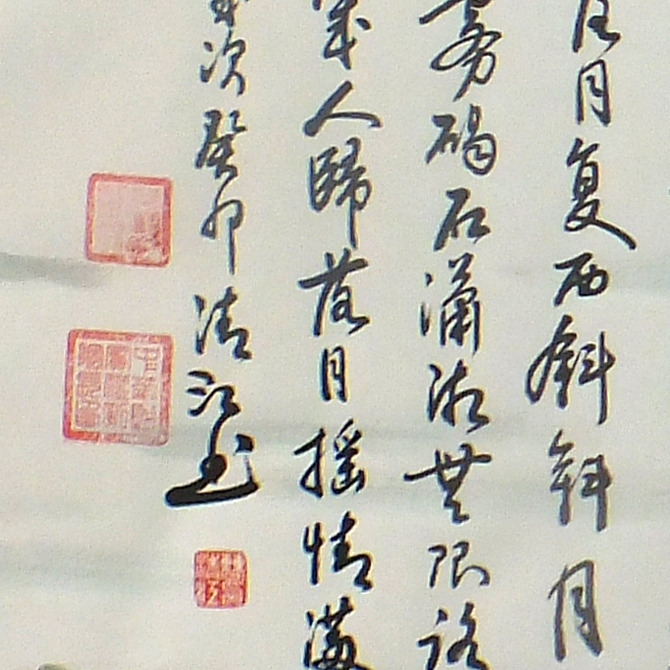 月复西斜斜月
雾碣石瀟湘無限路
幾人歸落月摇情滿
歲次癸卯清江书